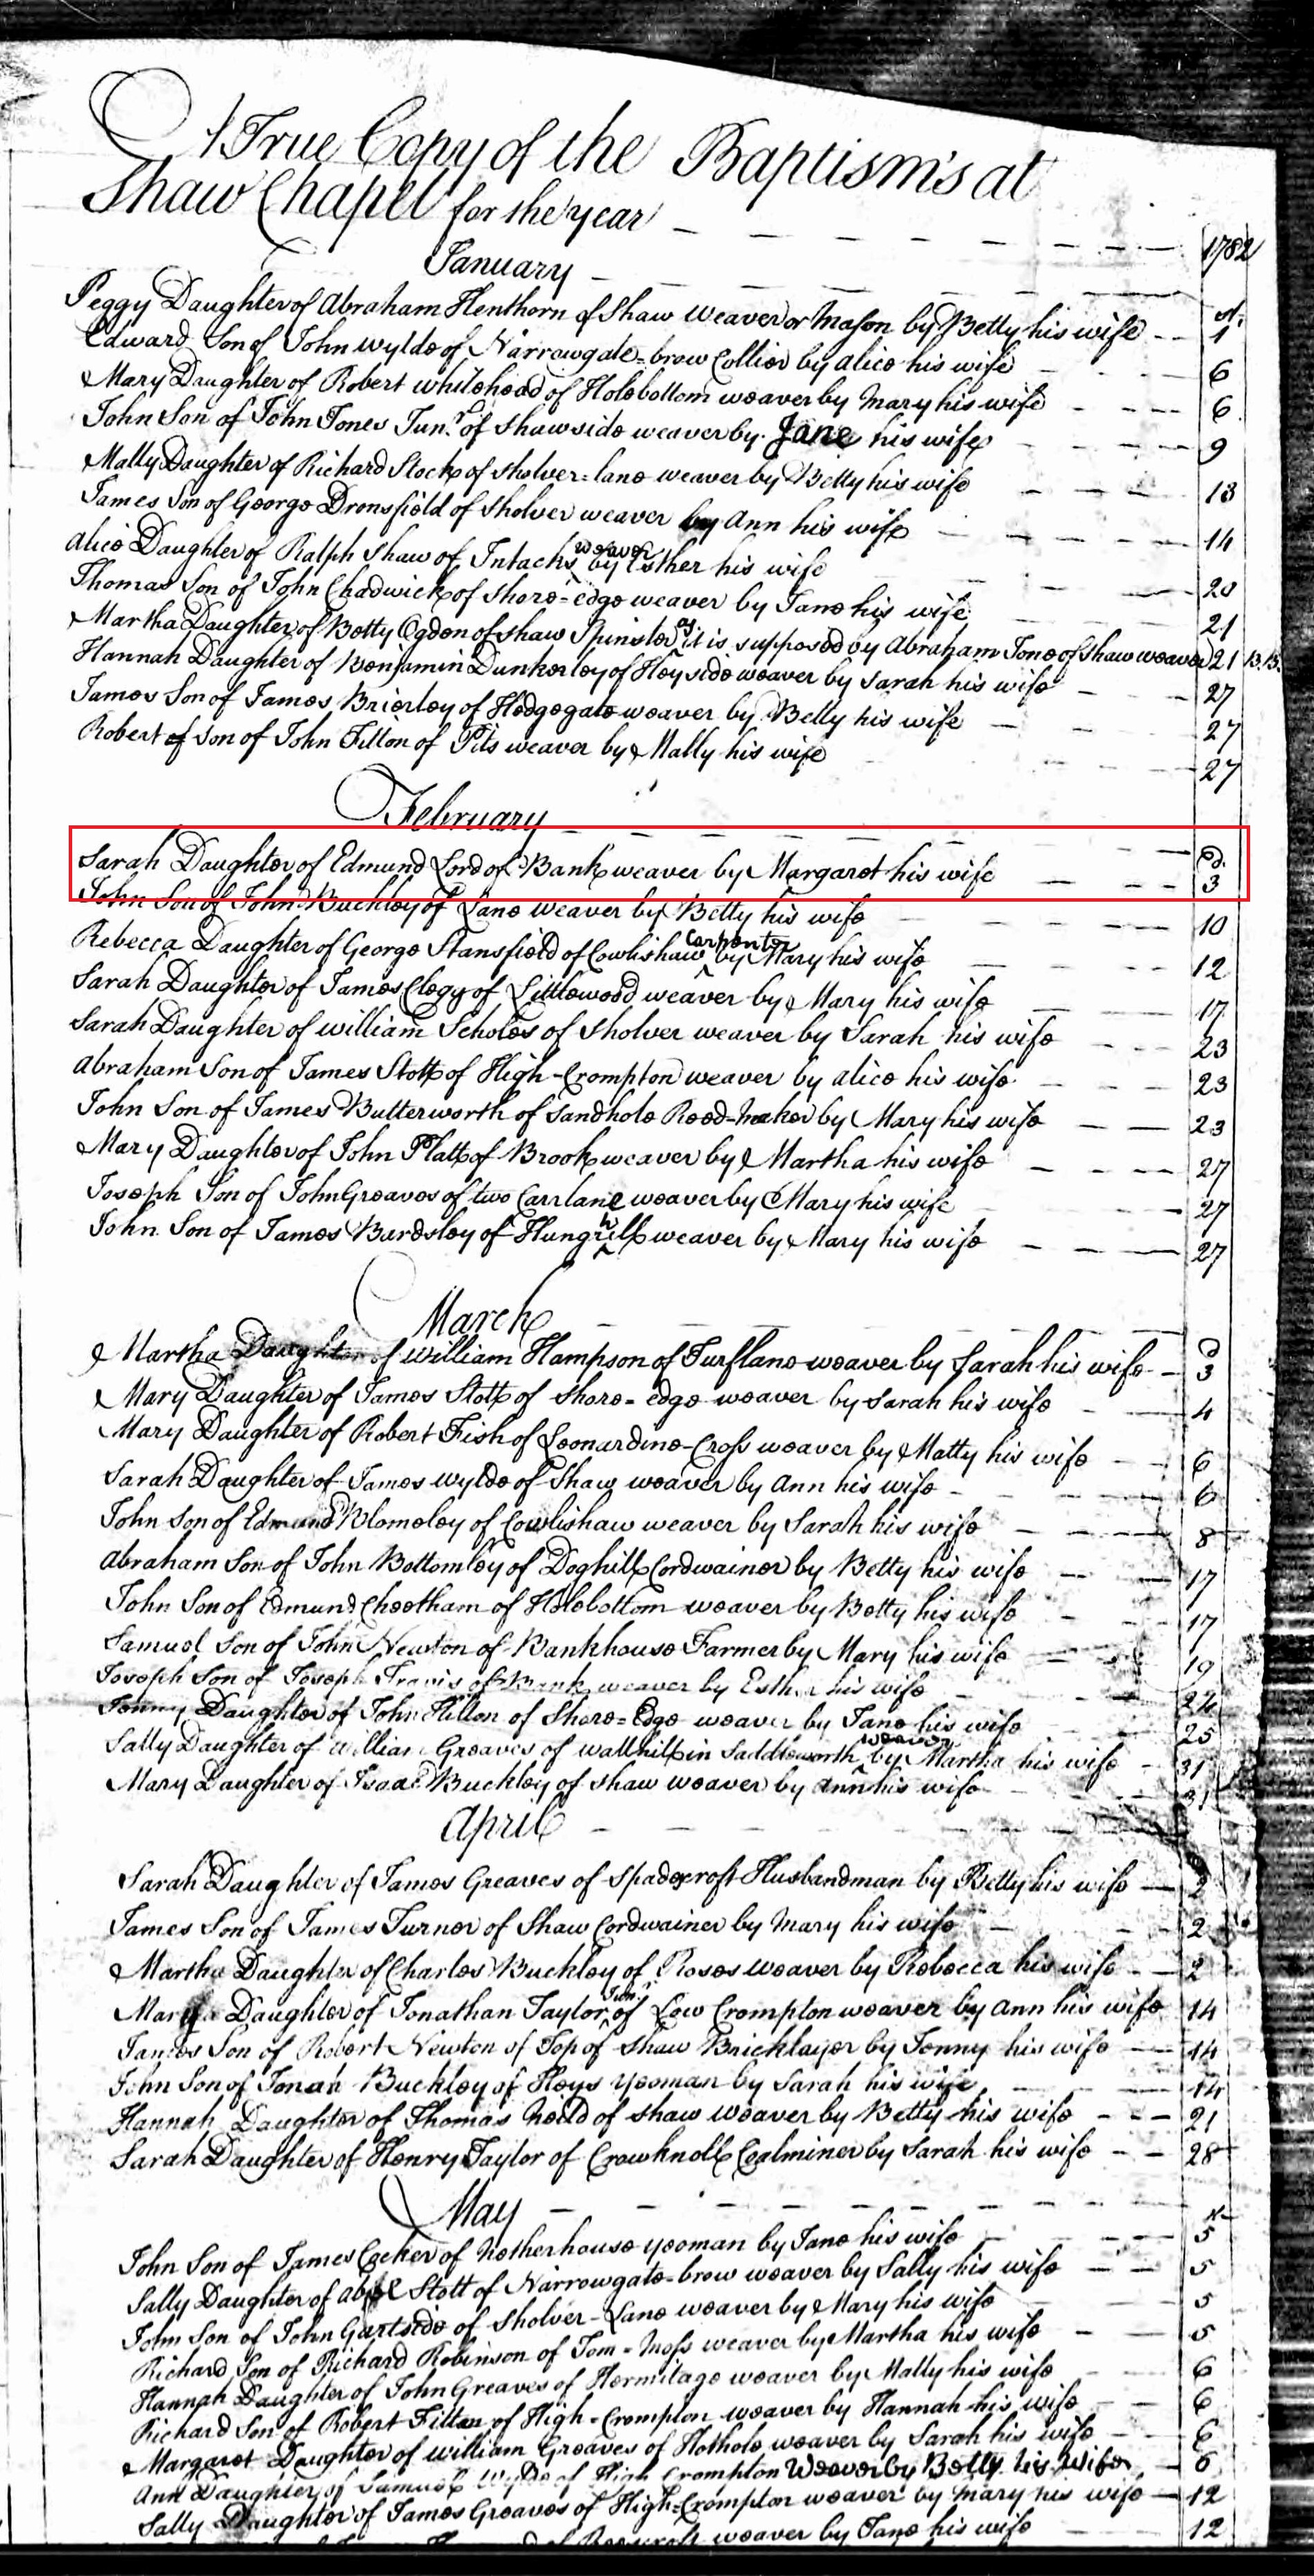 A True Copy of the Baptism's at
Shaw Chapel for the year 1782
January
Peggy Daughter of Abraham Henthorn of Shaw weaver or Mason by Betty his wife 1
Edward Son of John Wylde of Narrowgate-brow Collier by Alice his wife 6
Mary Daughter of Robert Whitehead of Holebottom weaver by Mary his wife 6
John Son of John Jones Junr. of Shawside weaver by Jane his wife 9
Mally Daughter of Richard Stock of Sholver-lane weaver by Betty his wife 13
James Son of George Dronsfield of Sholver weaver by Ann his wife 14
Alice Daughter of Ralph Shaw of Intacks weaver by Esther his wife 20
Thomas Son of John Chadwick of Shore-edge weaver by Jane his wife 21
Martha Daughter of Betty Ogden of Shaw Spinster as it is supposed by Abraham Jone of Shaw weaver 21 B.B.
Hannah Daughter of Benjamin Dunkerley of Heyside weaver by Sarah his wife 27
James Son of James Brierley of Hedgegate weaver by Betty his wife 27
Robert of Son of John Fitton of Pits weaver by Mally his wife 27
February
Sarah Daughter of Edmund Lord of Bank weaver by Margaret his wife 3
John Son of John Buckley of Lane weaver by Betty his wife 10
Rebecca Daughter of George Stansfield of Cowlishaw Carpenter by Mary his wife 12
Sarah Daughter of James Clegg of Littlewood weaver by Mary his wife 17
Sarah Daughter of William Scholes of Sholver weaver by Sarah his wife 23
Abraham Son of James Stott of High-Crompton weaver by Alice his wife 23
John Son of James Butterworth of Sandhole Reed-maker by Mary his wife 23
Mary Daughter of John Platt of Brook weaver by Martha his wife 27
Joseph Son of John Greaves of two Carrlane weaver by Mary his wife 27
John Son of James Bardsley of Hunghill weaver by Mary his wife 27
March
Martha Daughter of William Hampson of Turflane weaver by Sarah his wife 3
Mary Daughter of James Stott of Shore-edge weaver by Sarah his wife 4
Mary Daughter of Robert Fish of Leonardine-Cross weaver by Matty his wife 6
Sarah Daughter of James Wylde of Shaw weaver by Ann his wife 6
John Son of Edmund Blomeley of Cowlishaw weaver by Sarah his wife 8
Abraham Son of John Bottomley of Doghill Cordwainer by Betty his wife 17
John Son of Edmund Cheetham of Holebottom weaver by Betty his wife 17
Samuel Son of John Newton of Bankhouse Farmer by Mary his wife 19
Joseph Son of Joseph Travis of Bank weaver by Esther his wife 24
Jenny Daughter of John Hilton of Shore-Edge weaver by Jane his wife 25
Sally Daughter of William Greaves of Wallhill in Saddleworth weaver by Martha his wife 31
Mary Daughter of Isaac Buckley of Shaw weaver by Ann his wife 31
April
Sarah Daughter of James Greaves of Spadecroft Husbandman by Betty his wife 2
James Son of James Turner of Shaw Cordwainer by Mary his wife 2
Martha Daughter of Charles Buckley of Roses weaver by Rebecca his wife 2
Daughter of Jonathan Taylor Jun. of Low Crompton weaver by Ann his wife 14
James Son of Robert Newton of Top of Shaw Bricklayer by Jenny his wife 14
John Son of Jonah Buckley of Heys Yeoman by Sarah his wife 14
Hannah Daughter of Thomas Neild of Shaw weaver by Betty his wife 21
Sarah Daughter of Henry Taylor of Crowknoll Coalminer by Sarah his wife 28
May
John Son of James Cocker of Netherhouse yeoman by Jane his wife 5
Sally Daughter of Abel Stott of Narrowgate-brow weaver by Sally his wife 5
John Son of John Gartside of Sholver-Lane weaver by Mary his wife 5
Richard Son of Richard Robinson of Tom-Moss weaver by Martha his wife 5
Hannah Daughter of John Greaves of Hermitage weaver by Mally his wife 6
Richard Son of Robert Fitton of High-Crompton weaver by Hannah his wife 6
Margaret Daughter of William Greaves of Hothole weaver by Sarah his wife 6
Ann Daughter of Samuel Wylde of High Crompton Weaver by Betty his Wife 6
Sally Daughter of James Greaves of High-Crompton weaver by Mary his wife 12
weaver by Jane his wife 12